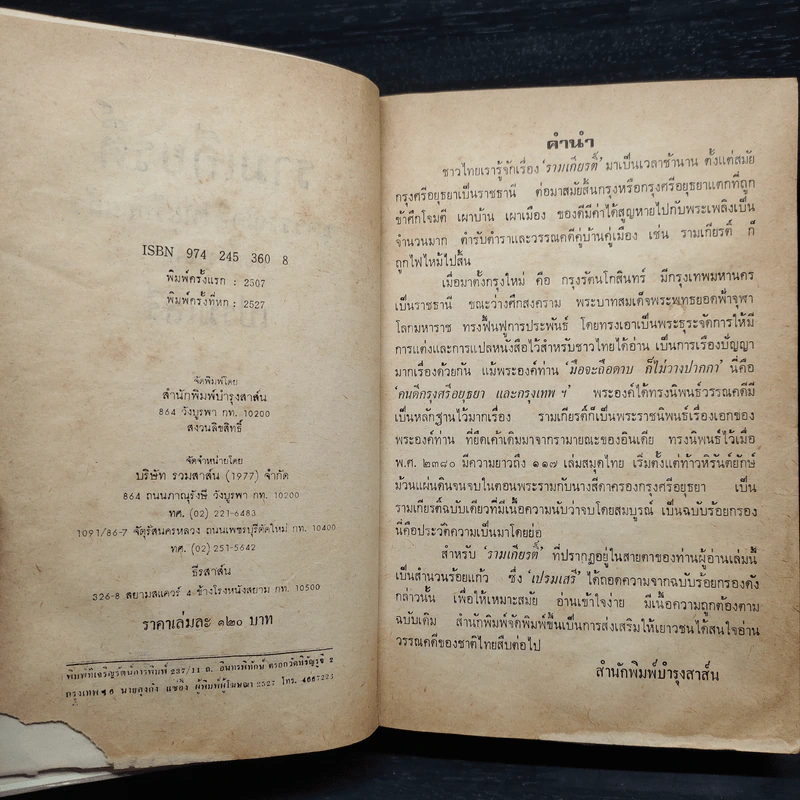 ISBN 974 245 360 8
พิมพ์ครั้งแรก : 2507
พิมพ์ครั้งที่หก : 2527
จัดพิมพ์โดย
สำนักพิมพ์บำรุงสาส์น
864 วังบูรพา กท. 10200
สงวนลิขสิทธิ์
จัดจำหน่ายโดย
บริษัท รวมสาส์น (1977) จำกัด
864 ถนนภาณุรังษี วังบูรพา กท. 10200
ทศ. (02) 221-6483
1091/86-7 จัตุรัสนครหลวง ถนนเพชรบุรีตัดใหม่ กท. 10400
ทศ. (02) 251-5642
ธีรสาส์น
326-8 สยามสแควร์ 4 ข้างโรงหนังสยาม กท. 10500
ราคาเล่มละ ๑๒๐ บาท
พิมพ์ที่เจริญรัตน์การพิมพ์ 237/11 ถ. อินทรพิทักษ์ ตรอกวัดหิรัญรูจี 2
กรุงเทพ ฯ 6 นายคุงกัง แซ่อึ้ง ผู้พิมพ์ผู้โฆษณา 2527 โทร. 4667223
คำนำ
ชาวไทยเรารู้จักเรื่อง 'รามเกียรติ์' มาเป็นเวลาช้านาน ตั้งแต่สมัย
กรุงศรีอยุธยาเป็นราชธานี ต่อมาสมัยสิ้นกรุงหรือกรุงศรีอยุธยาแตกที่ถูก
ข้าศึกโจมตี เผาบ้าน เผาเมือง ของดีมีค่าได้สูญหายไปกับพระเพลิงเป็น
จำนวนมาก ตำรับตำราและวรรณคดีคู่บ้านคู่เมือง เช่น รามเกียรติ์ ก็
ถูกไฟไหม้ไปสิ้น
เมื่อมาตั้งกรุงใหม่ คือ กรุงรัตนโกสินทร์ มีกรุงเทพมหานคร
เป็นราชธานี ขณะว่างศึกสงคราม พระบาทสมเด็จพระพุทธยอดฟ้าจุฬา
โลกมหาราช ทรงฟื้นฟูการประพันธ์ โดยทรงเอาเป็นพระธุระจัดการให้มี
การแต่งและการแปลหนังสือไว้สำหรับชาวไทยได้อ่าน เป็นการเรืองปัญญา
มากเรื่องด้วยกัน แม้พระองค์ท่าน 'มือจะถือดาบ ก็ไม่วางปากกา' นี่คือ
'คนดีกรุงศรีอยุธยา และกรุงเทพ ฯ' พระองค์ได้ทรงนิพนธ์วรรณคดีมี
เป็นหลักฐานไว้มากเรื่อง รามเกียรติ์ก็เป็นพระราชนิพนธ์เรื่องเอกของ
พระองค์ท่าน ที่ยึดเค้าเดิมมาจากรามายณะของอินเดีย ทรงนิพนธ์ไว้เมื่อ
พ.ศ. ๒๓๔๐ มีความยาวถึง ๑๑๗ เล่มสมุดไทย เริ่มตั้งแต่ท้าวหิรันต์ยักษ์
ม้วนแผ่นดินจนจบในตอนพระรามกับนางสีดาครองกรุงศรีอยุธยา เป็น
รามเกียรติ์ฉบับเดียวที่มีเนื้อความนับว่าจบโดยสมบูรณ์ เป็นฉบับร้อยกรอง
นี่คือประวัติความเป็นมาโดยย่อ
สำหรับ 'รามเกียรติ์' ที่ปรากฏอยู่ในสายตาของท่านผู้อ่านเล่มนี้
เป็นสำนวนร้อยแก้ว ซึ่ง 'เปรมเสรี' ได้ถอดความจากฉบับร้อยกรองดัง
กล่าวนั้น เพื่อให้เหมาะสมัย อ่านเข้าใจง่าย มีเนื้อความถูกต้องตาม
ฉบับเดิม สำนักพิมพ์จัดพิมพ์ขึ้นเป็นการส่งเสริมให้เยาวชนได้สนใจอ่าน
วรรณคดีของชาติไทยสืบต่อไป
สำนักพิมพ์บำรุงสาส์น